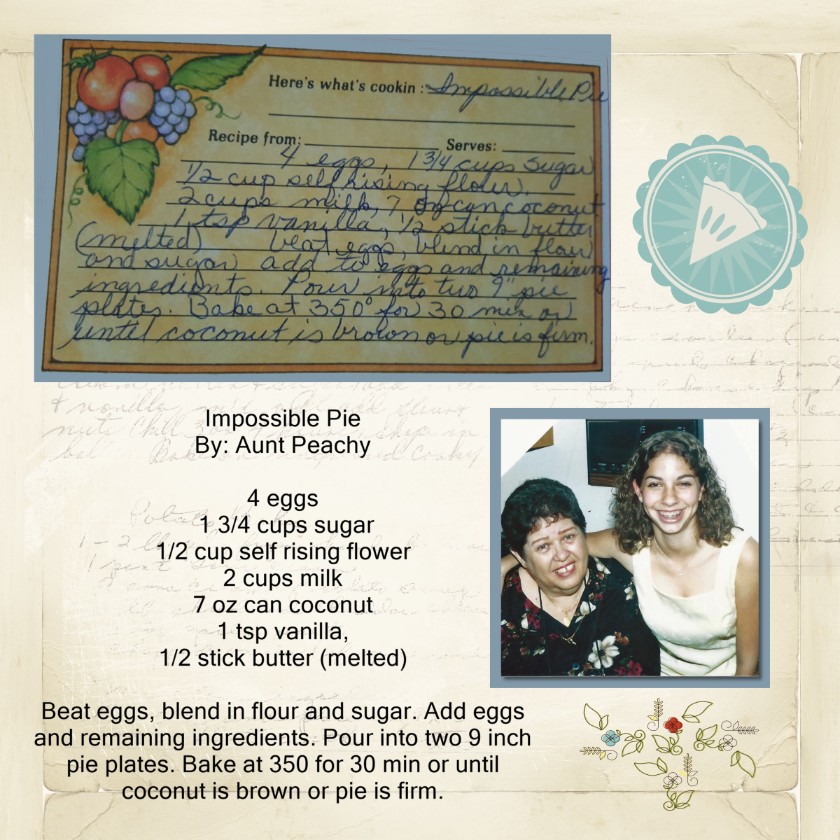 Here's what's cookin: Impossible Pie
Recipe from: Serves:
4 eggs, 1 3/4 cups sugar
1/2 cup self rising flour,
2 cups milk, 7 oz can coconut
1 tsp vanilla, 1/2 stick butter
(melted) beat eggs, blend in flour
and sugar) add to eggs and remaining
ingredients. Pour into two 9" pie
plates. Bake at 350° for 30 min or
until coconut is brown or pie is firm.
Impossible Pie
By: Aunt Peachy
4 eggs
1 3/4 cups sugar
1/2 cup self rising flower
2 cups milk
7 oz can coconut
1 tsp vanilla,
1/2 stick butter (melted)
Beat eggs, blend in flour and sugar. Add eggs
and remaining ingredients. Pour into two 9 inch
pie plates. Bake at 350 for 30 min or until
coconut is brown or pie is firm.